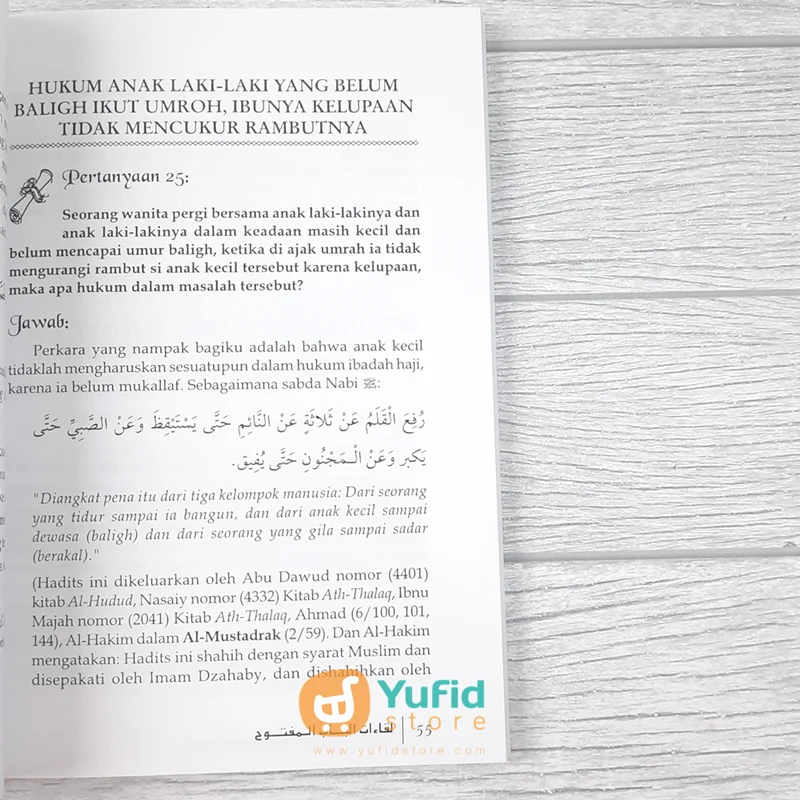 HUKUM ANAK LAKI-LAKI YANG BELUM
BALIGH IKUT UMROH, IBUNYA KELUPAAN
TIDAK MENCUKUR RAMBUTNYA
Pertanyaan 25:
Seorang wanita pergi bersama anak laki-lakinya dan
anak laki-lakinya dalam keadaan masih kecil dan
belum mencapai umur baligh, ketika di ajak umrah ia tidak
mengurangi rambut si anak kecil tersebut karena kelupaan,
maka apa hukum dalam masalah tersebut?
Jawab:
Perkara yang nampak bagiku adalah bahwa anak kecil
tidaklah mengharuskan sesuatupun dalam hukum ibadah haji,
karena ia belum mukallaf. Sebagaimana sabda Nabi ﷺ:
رُفِعَ الْقَلَمُ عَنْ ثَلاَثَةٍ عَنْ النَّائِمِ حَتَّى يَسْتَيْقِظَ وَعَنْ الصَّبِيِّ حَتَّى
يَكبر وَعَنْ الْمَجْنُونِ حَتَّى يُفِيق.
"Diangkat pena itu dari tiga kelompok manusia: Dari seorang
yang tidur sampai ia bangun, dan dari anak kecil sampai
dewasa (baligh) dan dari seorang yang gila sampai sadar
(berakal)."
(Hadits ini dikeluarkan oleh Abu Dawud nomor (4401)
kitab Al-Hudud, Nasaiy nomor (4332) Kitab Ath-Thalaq, Ibnu
Majah nomor (2041) Kitab Ath-Thalaq, Ahmad (6/100, 101,
144), Al-Hakim dalam Al-Mustadrak (2/59). Dan Al-Hakim
mengatakan: Hadits ini shahih dengan syarat Muslim dan
disepakati oleh Imam Dzahaby, dan dishahihkan oleh
Yufid
store
لقاءات الباب المفتوح | 55
www.yufidstore.com